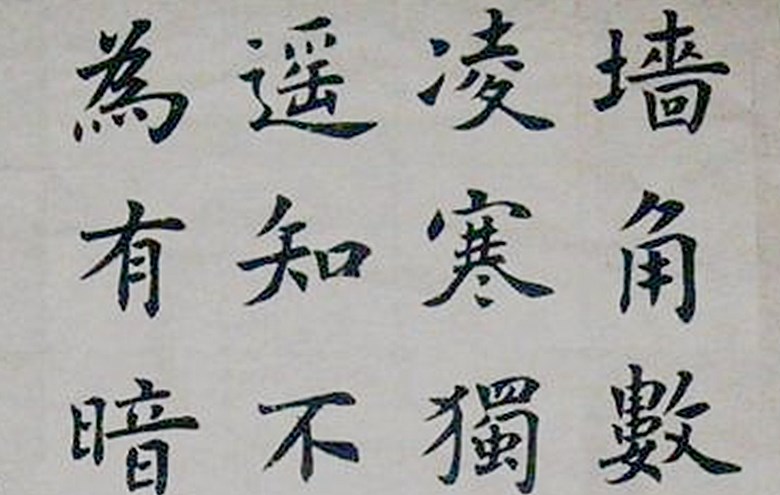 墻角數
凌寒獨
遥知不
為有暗